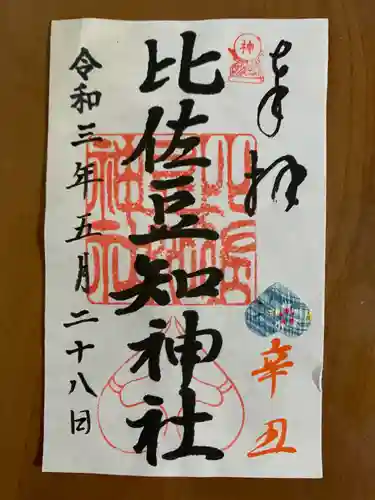 奉拝
神
辛丑
比佐豆知神社
令和三年五月二十八日